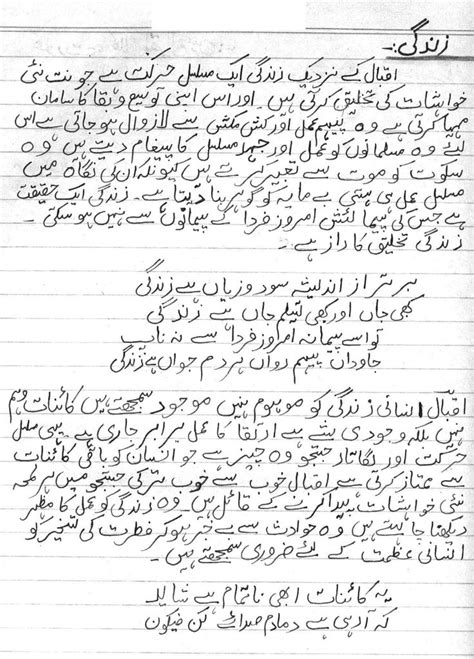 زندگی:۔
اقبال کے نزدیک زندگی ایک مسلسل حرکت ہے جو نت نئی
خواہشات کی تخلیق کرتی ہیں۔ اور اس اپنی توسیع و بقا کا سامان
مہیا کرتی ہے وہ پیہم عمل اور کش مکش سے لازوال ہو جاتی ہے اس
لیے وہ مسلمانوں کو عمل اور جہد مسلسل کا پیغام دیتے ہیں وہ
سکوت کو موت سے تعبیر کرتے ہیں کیونکہ ان کی نگاہ میں
مسلسل عمل ہی ہستی بے مایہ کو گوہر بنا دیتا ہے۔ زندگی ایک حقیقت
ہے جس کی پیمائش امروز فردا کے پیمانوں سے نہیں ہو سکتی۔
زندگی تخلیق کا راز ہے۔
برتر از اندیشہ سود و زیاں ہے زندگی
کبھی جاں اور کبھی تسلیم جاں ہے زندگی
تو اسے پیمانہ امروز فردا سے نہ ناپ
جاوداں پیہم رواں ہر دم جواں ہے زندگی
اقبال انسانی زندگی کو موہوم نہیں موجود سمجھتے ہیں کائنات وہم
نہیں بلکہ وجودی ہے ارتقا کا عمل برابر جاری ہے یہی مسلسل
حرکت اور لگاتار جستجو وہ چیز ہے جو انسان کو باقی کائنات
سے ممتاز کرتی ہے اقبال خوب سے خوب تر کی جستجو میں ہر لمحہ
نئی خواہشات پیدا کرنے کے قائل ہیں۔ وہ زندگی کو عمل کا مظہر
دیکھنا چاہتے ہیں وہ حوادث سے بے خبر ہو کر فطرت کی تسخیر کو
انسانی عظمت کے لئے ضروری سمجھتے ہیں۔
یہ کائنات ابھی ناتمام ہے شاید
کہ آ رہی ہے دمادم صدائے کن فیکون